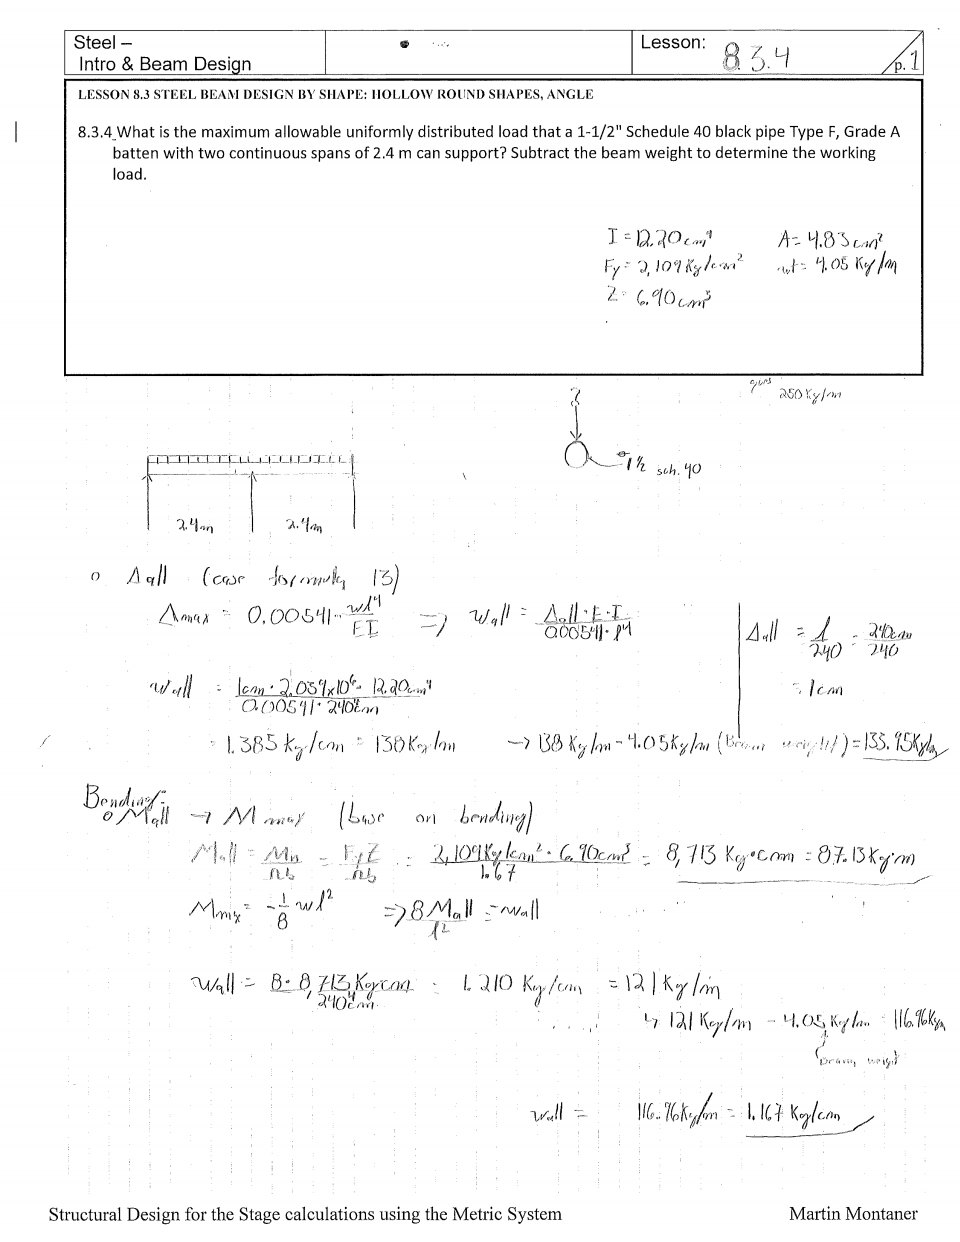 Steel –
Intro & Beam Design
Lesson: 8.3.4
p. 1
LESSON 8.3 STEEL BEAM DESIGN BY SHAPE: HOLLOW ROUND SHAPES, ANGLE
8.3.4 What is the maximum allowable uniformly distributed load that a 1-1/2" Schedule 40 black pipe Type F, Grade A
batten with two continuous spans of 2.4 m can support? Subtract the beam weight to determine the working
load.
I = 12.20 cm⁴ A = 4.83 cm²
Fy = 2,109 Kg/cm² wt = 4.05 Kg/m
Z = 6.90 cm³
250 Kg/m
?
1 ½ sch. 40
2.4m 2.4m
o Δall (case formula 13)
Δmax = 0.00541 · wl⁴/EI => wall = Δall·E·I / 0.00541·l⁴
Δall = l/240 = 240cm/240
= 1cm
wall = 1cm · 2.039x10⁶ · 12.20cm⁴ / 0.00541 · 240⁴cm
= 1.385 Kg/cm = 138 Kg/m → 138 Kg/m - 4.05 Kg/m (Beam weight) = 133.95 Kg/m
Bending:
o Mall → M max (base on bending)
Mall = Mn/Ωb = FyZ/Ωb = 2,109 Kg/cm² · 6.90cm³ / 1.67 = 8,713 Kg·cm = 87.13 Kg·m
Mmax = -1/8 wl² => 8 Mall / l² = wall
wall = 8 · 8,713 Kg·cm / 240²cm = 1.210 Kg/cm = 121 Kg/m
↳ 121 Kg/m - 4.05 Kg/m = 116.96 Kg/m
Beam weight
wall = 116.96 Kg/m = 1.167 Kg/cm
Structural Design for the Stage calculations using the Metric System
Martin Montaner